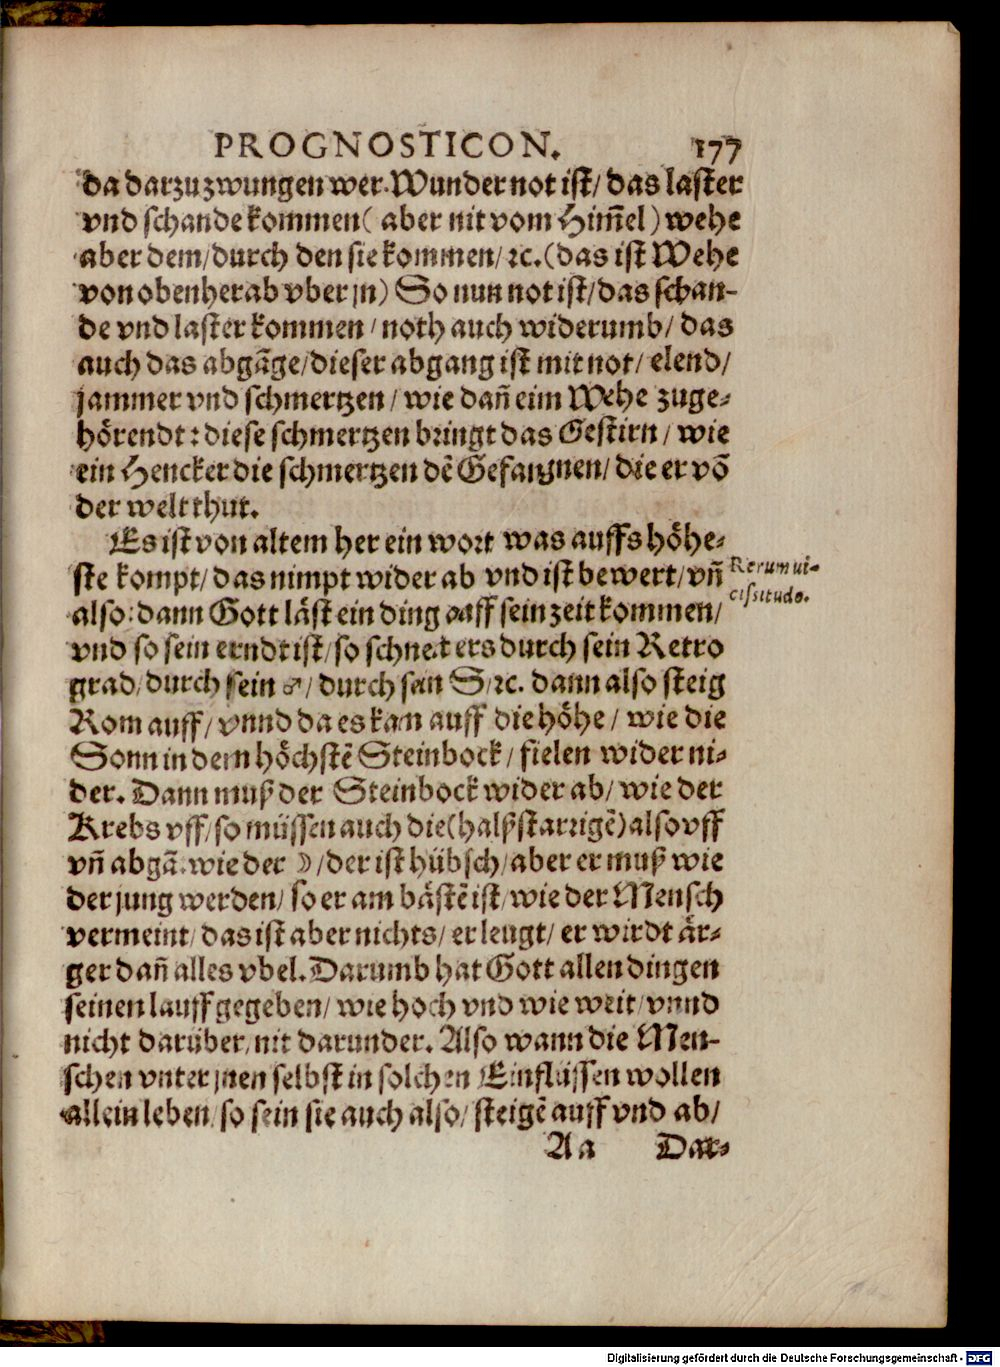 PROGNOSTICON. 177
da darzu zwungen wer. Wunder not ist/ das laster
vnd schande kommen ( aber nit vom Him̃el ) wehe
aber dem/ durch den sie kommen/ ꝛc. (das ist Wehe
von obenherab vber jn) So nun not ist/ das schan-
de vnd laster kommen / noth auch widerumb/ das
auch das abgãge/ dieser abgang ist mit not/ elend/
jammer vnd schmertzen / wie dañ eim Wehe zuge-
hörendt: diese schmertzen bringt das Gestirn / wie
ein Hencker die schmertzen dẽ Gefangnen/ die er võ
der welt thut.
Es ist von altem her ein wort was auffs höhe-
ste kompt/ das nimpt wider ab vnd ist bewert/ vñ
also: dann Gott läst ein ding auff sein zeit kommen/
vnd so sein erndt ist/ so schneit ers durch sein Retro
grad/ durch sein ♂/ durch sein S/ ꝛc. dann also steig
Rom auff/ vnnd da es kam auff die höhe / wie die
Sonn in dem höchstẽ Steinbock / fielen wider ni-
der. Dann muß der Steinbock wider ab/ wie der
Krebs vff/ so müssen auch die (halßstarrigẽ) also vff
vñ abgã. wie der ☽/ der ist hübsch/ aber er muß wie
der jung werden/ so er am bästẽ ist/ wie der Mensch
vermeint/ das ist aber nichts/ er leugt/ er wirdt är-
ger dañ alles vbel. Darumb hat Gott allen dingen
seinen lauff gegeben/ wie hoch vnd wie weit/ vnnd
nicht darüber/ nit darunder. Also wann die Men-
schen vnter jnen selbst in solchen Einflüssen wollen
allein leben/ so sein sie auch also/ steigẽ auff vnd ab/
Aa Dar-
Rerum ui-
cissitudo.
Digitalisierung gefördert durch die Deutsche Forschungsgemeinschaft - DFG